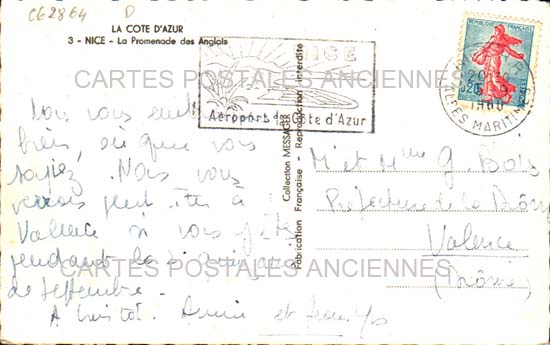 CG2864 D
LA COTE D'AZUR
3 - NICE - La Promenade des Anglais
NICE
Aéroport de la Côte d'Azur
REPUBLIQUE FRANÇAISE
0,20
ALPES MARITIMES
CARTES POSTALES ANCIENNES
vous vous
bien, où que vous
soyez. Nous vous
verrons peut-être à
Valence si vous
pendant la
de septembre.
A bientôt. Annie et
Collection MESSAGER
Fabrication Française - Reproduction interdite
M. et Mme G. Bois
Préfecture de la Drôme
Valence
(Drôme)
CARTES POSTALES ANCIENNES